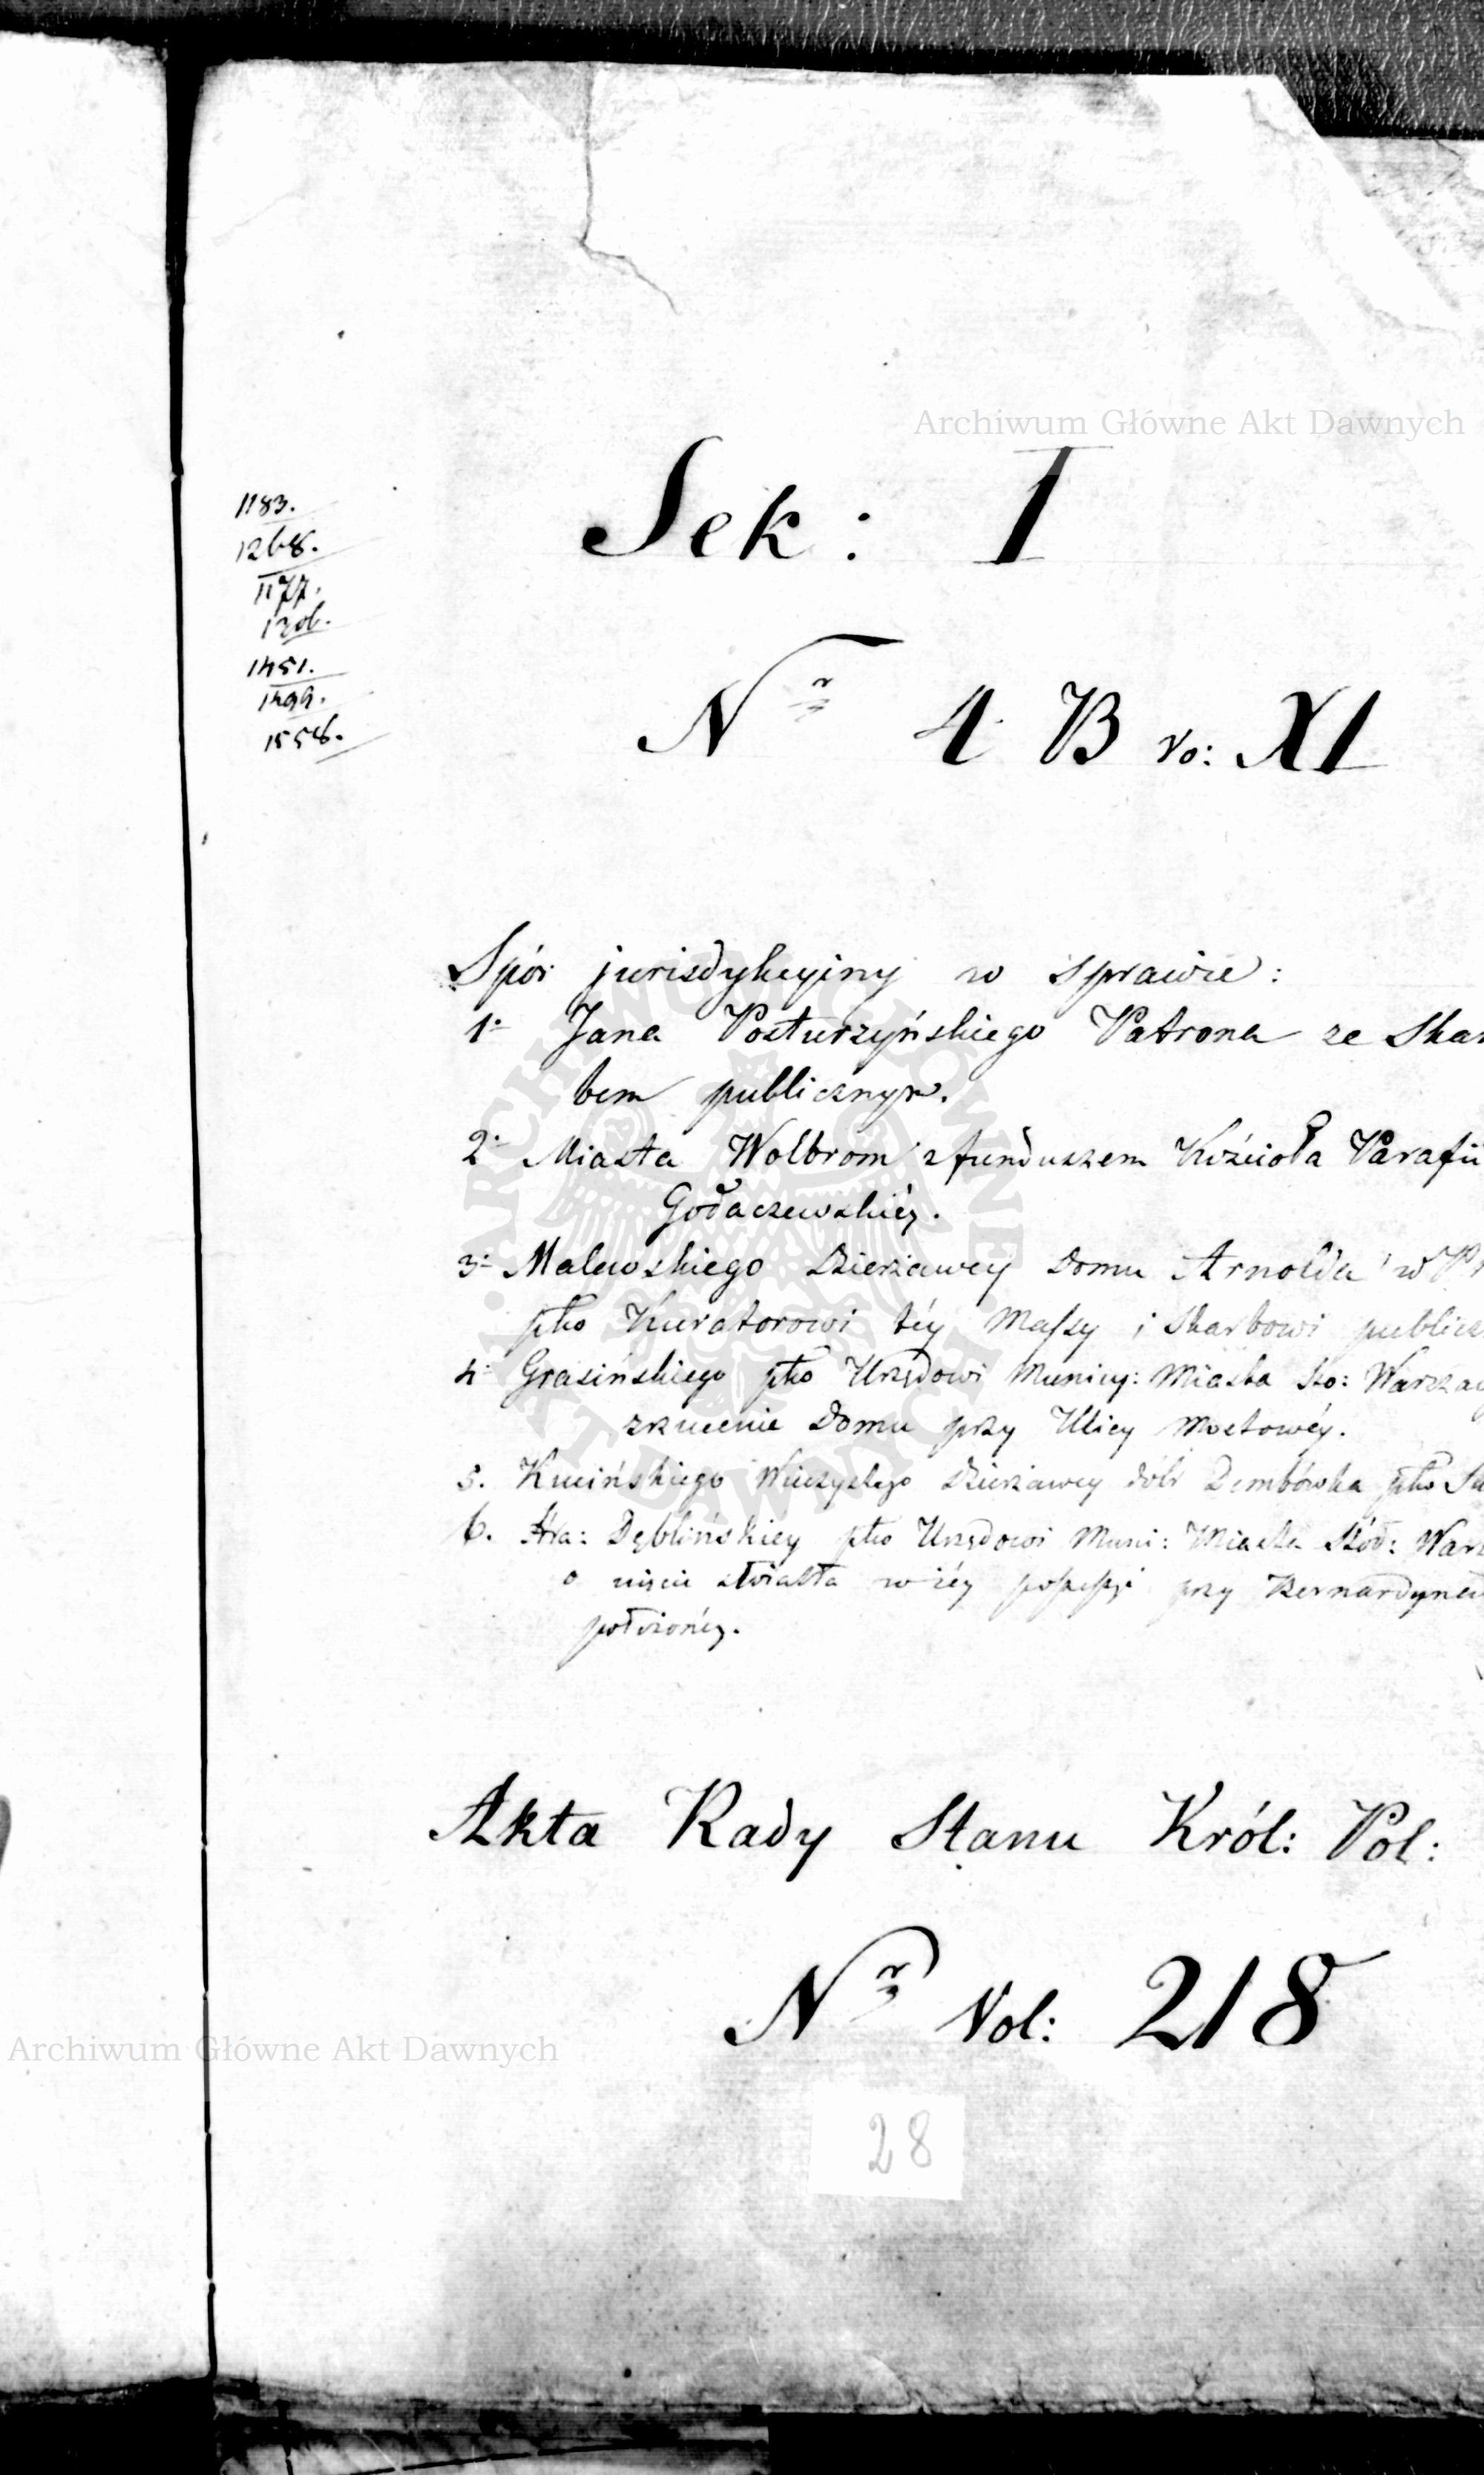 Archiwum Główne Akt Dawnych
Sek: I
1183.
1268.
1177.
1206.
1451.
1499.
1558.
Nr 4 B vo: XI
Spór jurisdykcyiny w sprawie:
1. Jana Posturzyńskiego Patrona ze Skar
bem publicznym.
2. Miasta Wolbrom z funduszem Kościoła Parafii
Gołaczewskiéy.
3. Malewskiego Dzierżawcy Domu Arnolda w
pko Kuratorowi téy Massy i Skarbowi publicz
4. Grasińskiego pko Urzędowi Municy: Miasta Sto: Warszawy
zrzucenie Domu przy Ulicy Mostowéy.
5. Kucińskiego Wieczystego Dzierżawcy dóbr Dembówka pko
6. Hra: Dęblińskiéy pko Urzędowi Muni: Miasta Stół: Warsz
o ujęcie światła w jéy possessyi przy Bernardynek
położonéy.
ARCHIWUM GŁÓWNE AKT DAWNYCH
Akta Rady Stanu Król: Pol:
Nr Vol: 218
Archiwum Główne Akt Dawnych
28